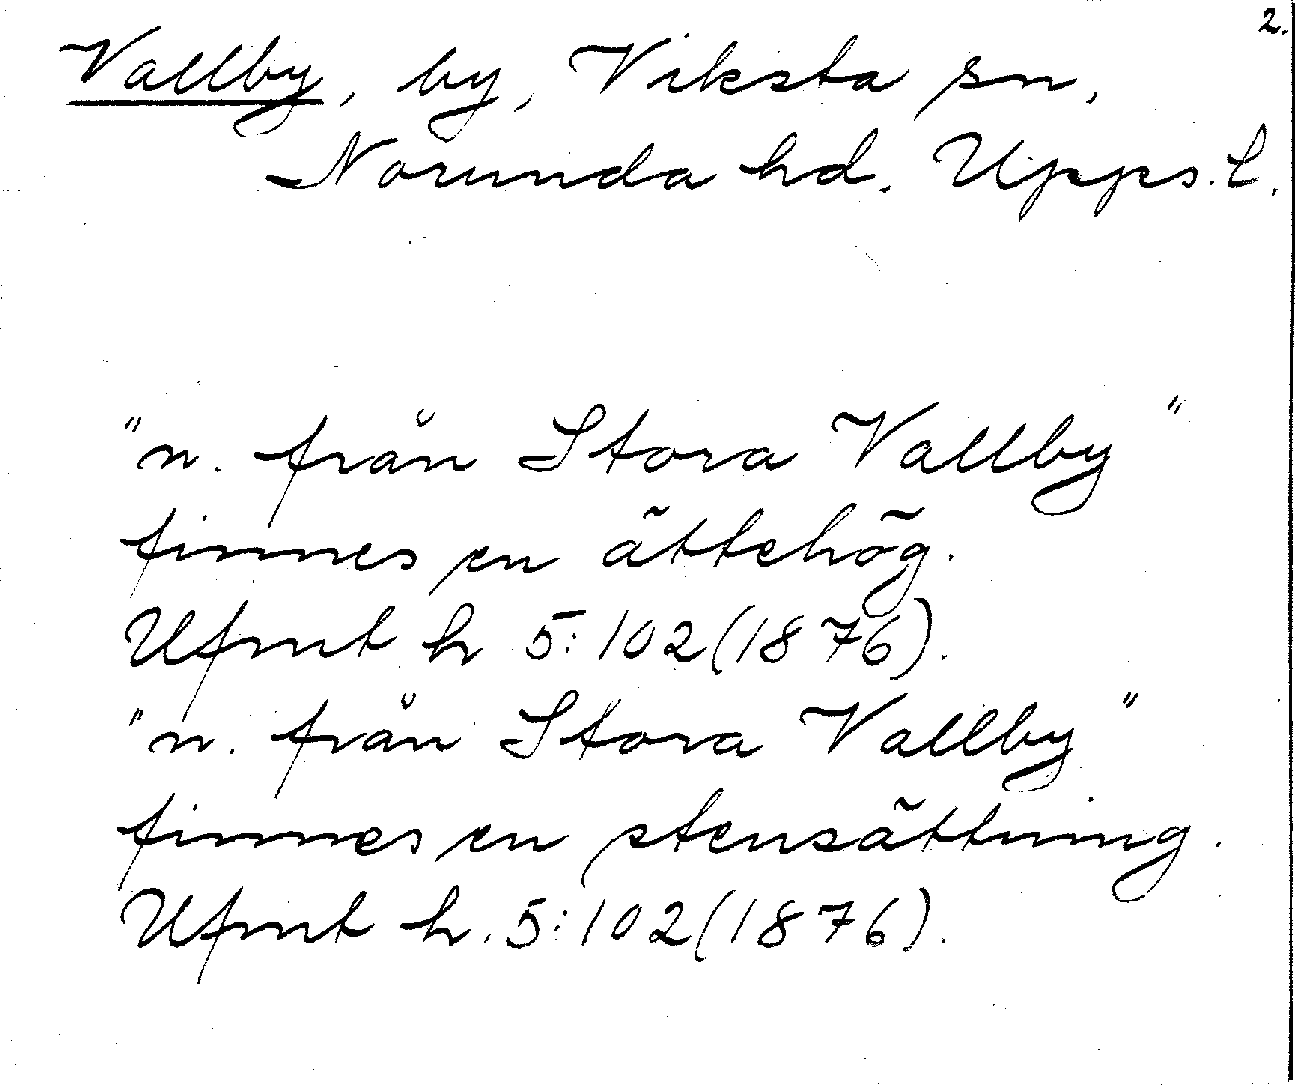 2.
Vallby, by, Viksta sn,
Norunda hd. Upps. l.
"n. från Stora Vallby"
finnes en ättehög.
Ufmt h 5:102(1876).
"n. från Stora Vallby"
finnes en stensättning.
Ufmt h. 5:102(1876).